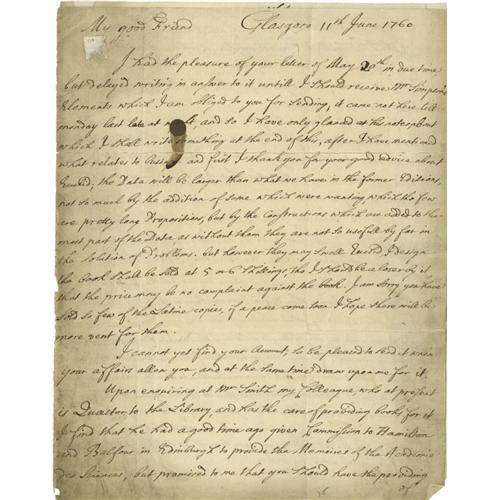 My good Friend Glasgow 11th June 1760
I had the pleasure of your letter of May 20th in due time
but delayed writing in answer to it untill I should receive Mr Simpson's
Elements which I am obliged to you for sending, it came not here till
monday last late at night and so I have only glanced at the notes about
which I shall write something at the end of this, after I have mentioned
what relates to and first I thank you for your good advice about
Euclid; the Data will be larger than what we have in the former Editions,
not so much by the addition of some which were wanting which tho' few
are pretty long Propositions, but by the Constructions which are added to the
most part of the Data as without them they are not so usefull by far in
the Solution of Problems. but however they may swell Euclid, I design
the book shall be sold at 5 or 6 shillings, tho' I should be a loser by it
that the price may be no complaint against the book. I am sorry you have
sold so few of the Latine copies, if a peace come soon I hope there will be
more vent for them.
I cannot yet find your Account, so be pleased to send it when
your affairs allow you, and at the same time draw upon me for it.
Upon enquiring at Mr Smith my Colleague, who at present
is Quaestor to the Library, and has the care of providing books for it
I find that he had a good time ago given Commission to Hamilton
and Balfour in Edinburgh to provide the Memoires of the Academie
des Sciences, but promised to me that you should have the providing